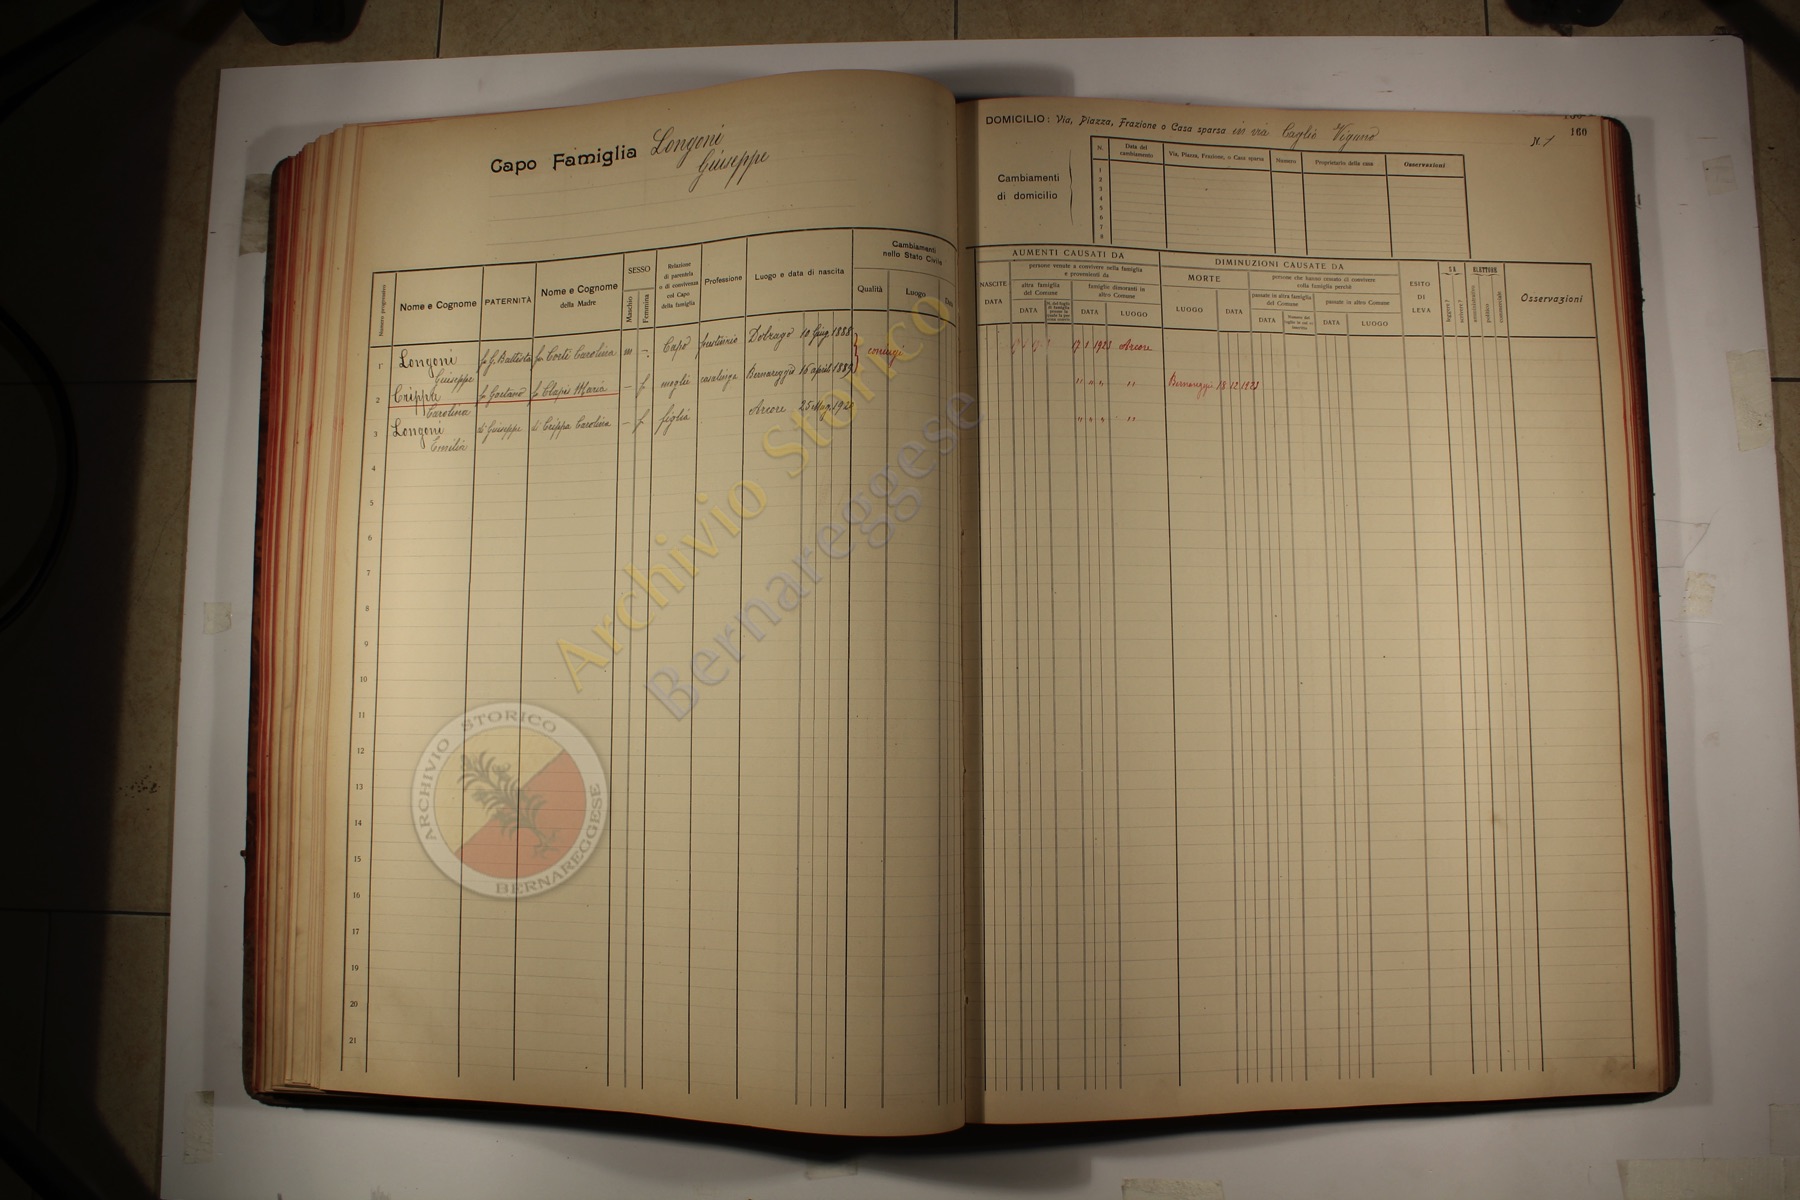 Capo Famiglia Longoni
Giuseppe
Numero progressivo
Nome e Cognome
PATERNITÀ
Nome e Cognome
della Madre
SESSO
Maschio
Femmina
Relazione
di parentela
o di convivenza
col Capo
della famiglia
Professione
Luogo e data di nascita
Cambiamenti
nello Stato Civile
Qualità
Luogo
Data
1 Longoni fu G. Battista fu Corti Carolina m - Capo Dobrago 10 Giug. 1888 coniugi
Giuseppe
2 Crippa fu Gaetano fu Clapis Maria - f moglie casalinga Bernareggio 16 april 1889
Carolina
3 Longoni di Giuseppe di Crippa Carolina - f figlia Arcore 25 Mag. 1920
Emilia
4
5
6
7
8
9
10
11
12
13
14
15
16
17
19
20
21
DOMICILIO: Via, Piazza, Frazione o Casa sparsa in via Caglio Viganò
N. 1
160
Cambiamenti
di domicilio
N.
Data del
cambiamento
Via, Piazza, Frazione, o Casa sparsa
Numero
Proprietario della casa
Osservazioni
1
2
3
4
5
6
7
8
AUMENTI CAUSATI DA
NASCITE
DATA
persone venute a convivere nella famiglia
e provenienti da
altra famiglia
del Comune
DATA
famiglie dimoranti in
altro Comune
DATA
LUOGO
DIMINUZIONI CAUSATE DA
MORTE
LUOGO
DATA
persone che hanno cessato di convivere
colla famiglia perchè
passate in altra famiglia
del Comune
DATA
passate in altro Comune
DATA
LUOGO
ESITO
DI
LEVA
SA
leggere?
scrivere?
ELETTORE
amministrativo
politico
commerciale
Osservazioni
17 1 1923 Arcore
" " " " Bernareggio 18 12 1923
" " " "
Archivio Storico
Bernareggese
ARCHIVIO STORICO
BERNAREGGESE